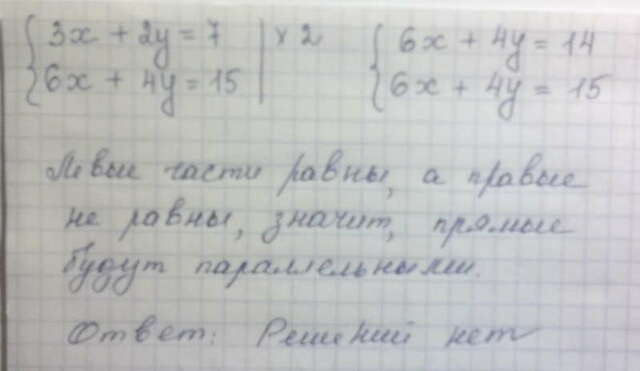 3x + 2y = 7 | x 2 6x + 4y = 14
6x + 4y = 15 6x + 4y = 15
Левые части равны, а правые
не равны, значит, прямые
будут параллельными.
Ответ: Решений нет